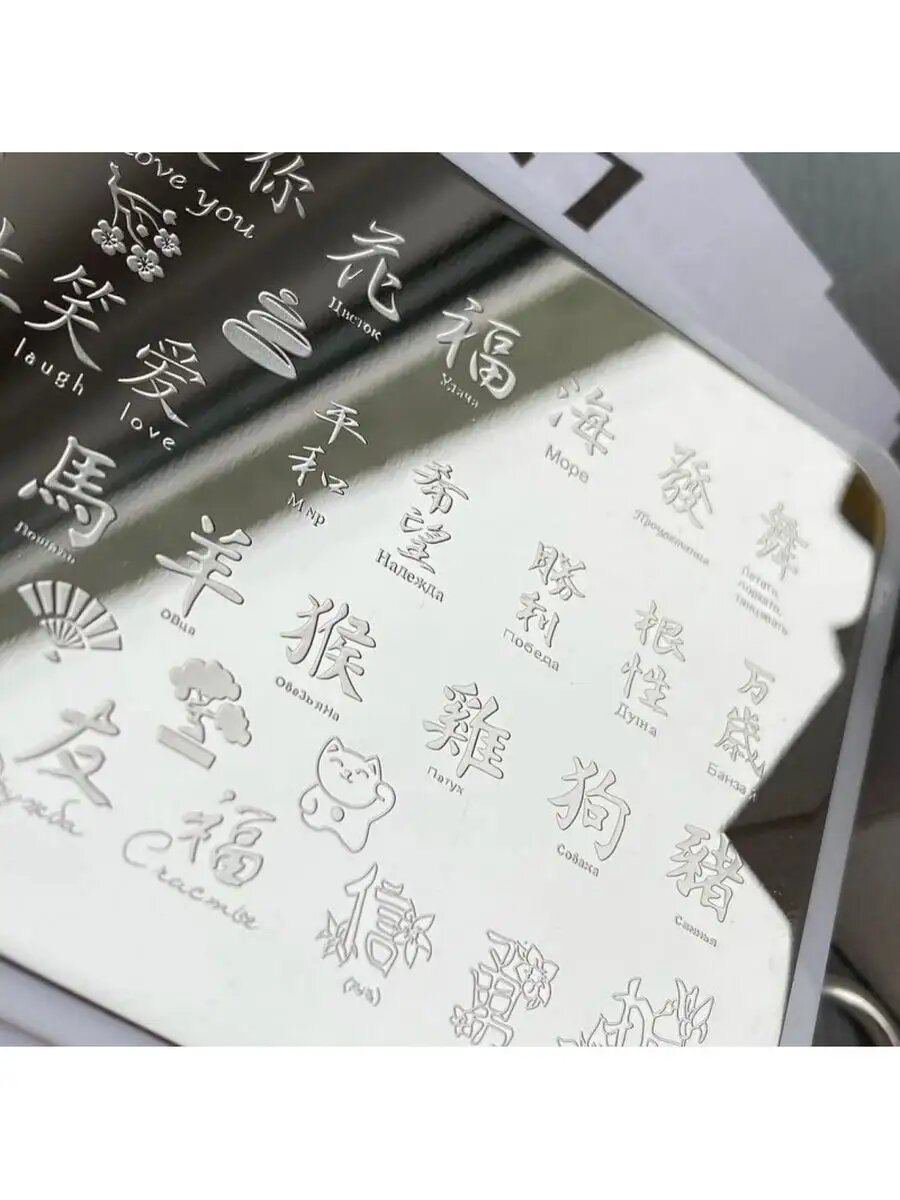 你
love you
笑
laugh
爱
love
花
Цветок
福
Удача
海
Море
發
Процветание
舞
Летать,
порхать,
танцевать
馬
Лошадь
羊
овца
平和
Мир
希望
Надежда
勝利
Победа
根性
Душа
万歳
Банзай
猴
Обезьяна
雞
Петух
狗
Собака
豬
Свинья
友
Дружба
福
Счастье
信